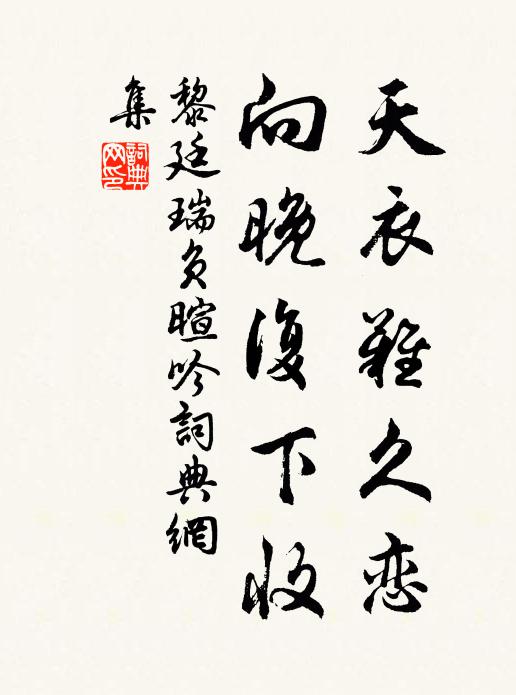 天衣難久恋
向晚復下收
黎廷瑞負暄吟詞典網
集
詞典
网印